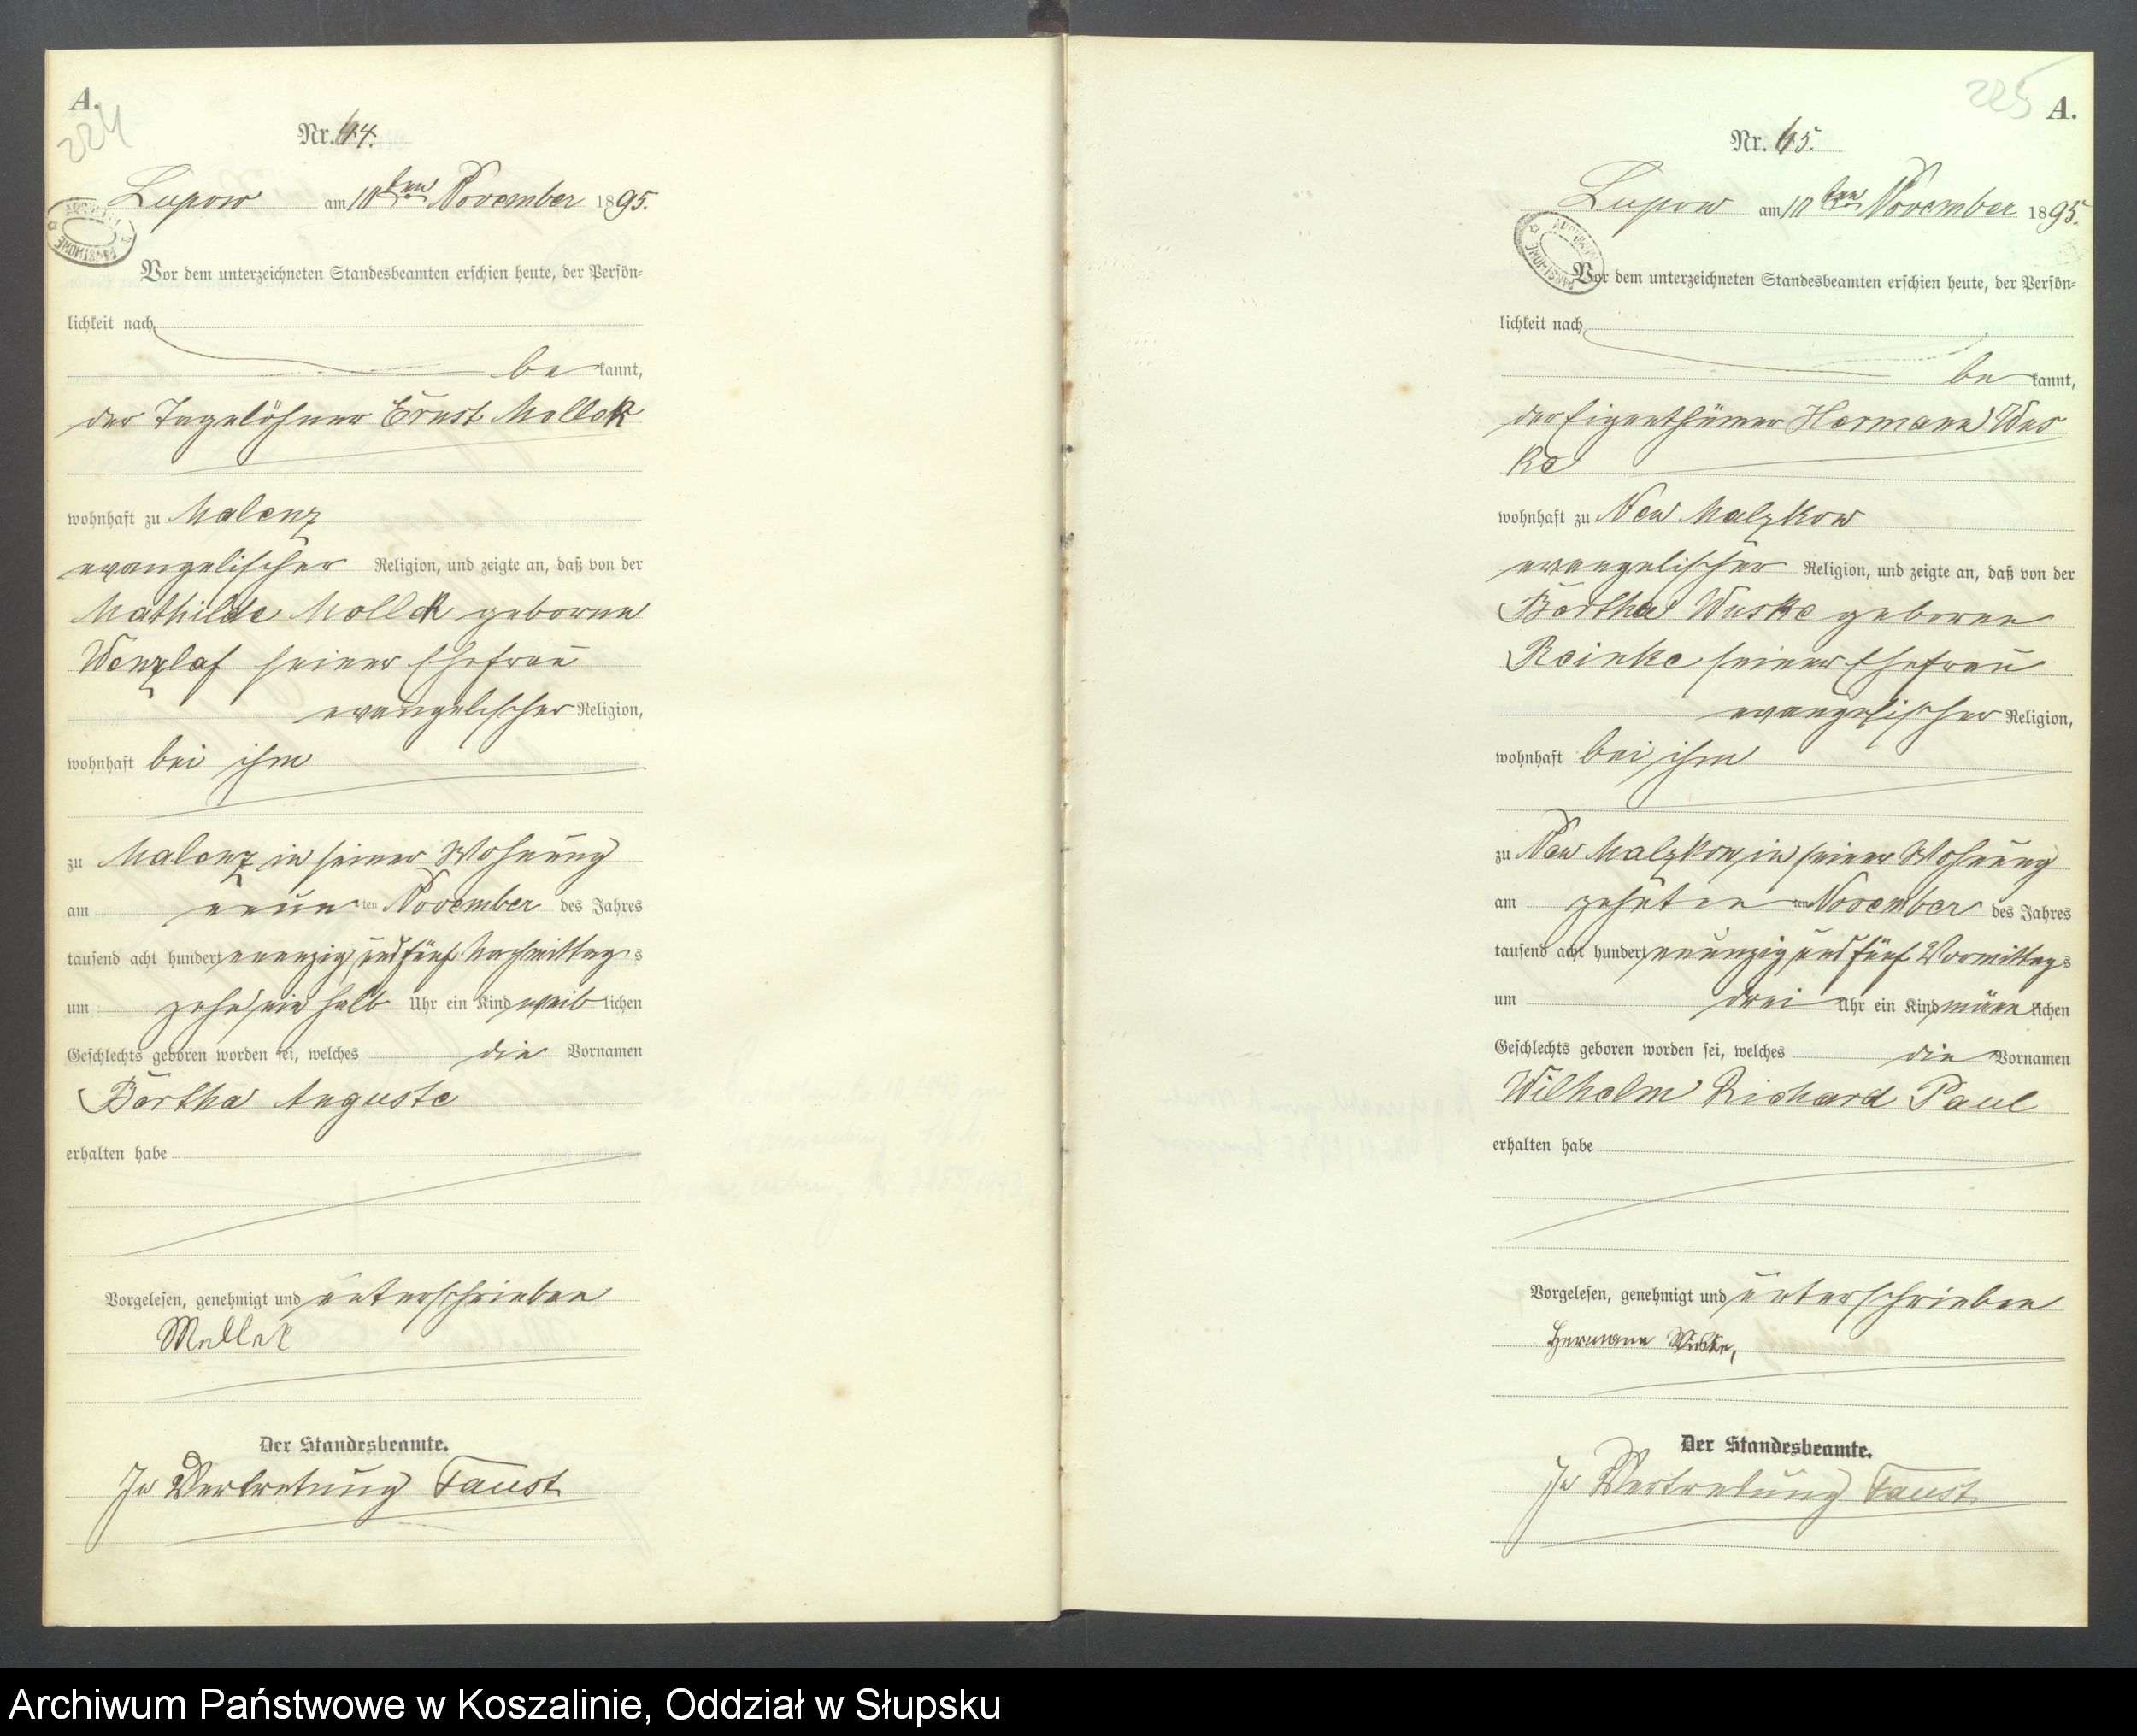 A.
224
Nr. 64.
Lupow am 10ten November 1895.
Vor dem unterzeichneten Standesbeamten erschien heute, der Persön=
lichkeit nach
be kannt,
der Tagelöhner Ernst Mollek
wohnhaft zu Malenz
evangelischer Religion, und zeigte an, daß von der
Mathilde Mollek geborene
Wenzlaf seiner Ehefrau
evangelischer Religion,
wohnhaft bei ihm
zu Malenz in seiner Wohnung
am neunten November des Jahres
tausend acht hundert neunzig und fünf Nachmittags
um zehn ein halb Uhr ein Kind weiblichen
Geschlechts geboren worden sei, welches die Vornamen
Bertha Auguste
erhalten habe
Vorgelesen, genehmigt und unterschrieben
Mollek
Der Standesbeamte.
In Vertretung Faust
225
A.
Nr. 65.
Lupow am 10ten November 1895.
Vor dem unterzeichneten Standesbeamten erschien heute, der Persön=
lichkeit nach
be kannt,
der Eigenthümer Hermann Wus
ke
wohnhaft zu Neu Malzkow
evangelischer Religion, und zeigte an, daß von der
Bertha Wuske geborene
Reinke seiner Ehefrau
evangelischer Religion,
wohnhaft bei ihm
zu Neu Malzkow in seiner Wohnung
am zehnten ten November des Jahres
tausend acht hundert neunzig und fünf Vormittags
um drei Uhr ein Kind männlichen
Geschlechts geboren worden sei, welches die Vornamen
Wilhelm Richard Paul
erhalten habe
Vorgelesen, genehmigt und unterschrieben
Hermann Wuske,
Der Standesbeamte.
In Vertretung Faust
Archiwum Państwowe w Koszalinie, Oddział w Słupsku